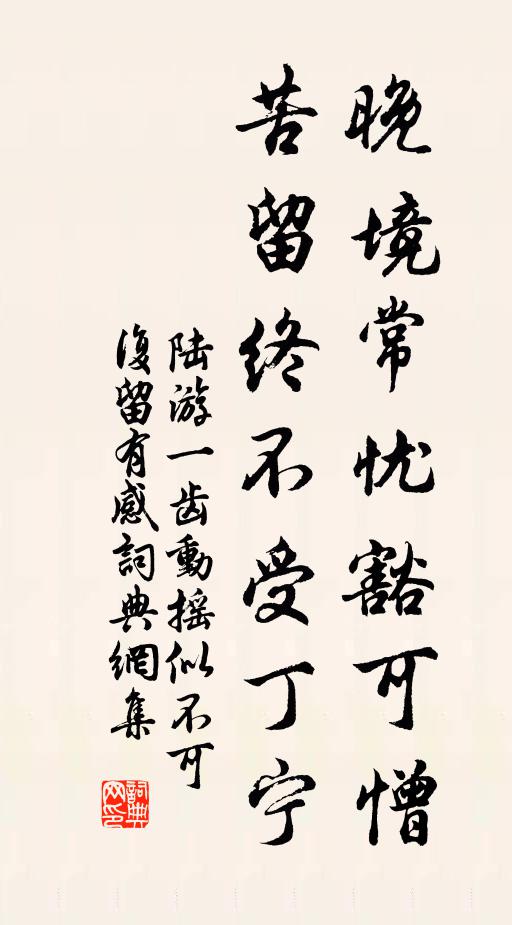 晚境常忧豁可憎
苦留终不受丁宁
陆游一齿動摇似不可
復留有感詞典網集
詞典网印